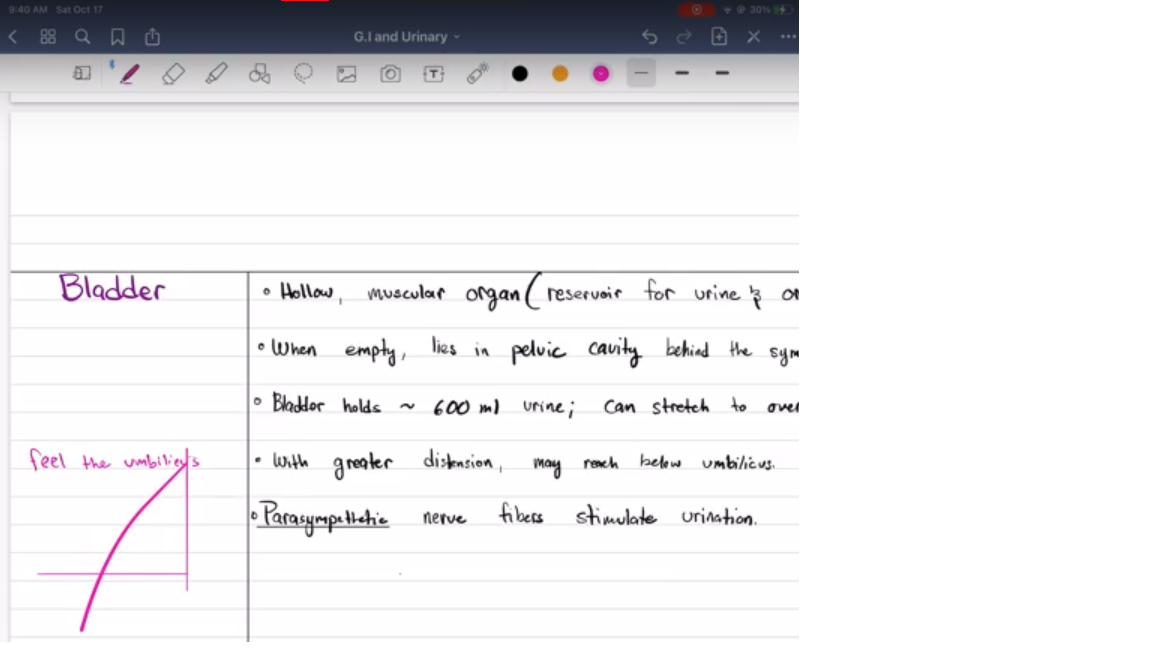 9:40 AM Sat Oct 17
30%
G.I and Urinary
T
Bladder
Hollow, muscular organ ( reservoir for urine & or
When empty, lies in pelvic cavity behind the sym
Bladder holds ~ 600 ml urine; can stretch to over
feel the umbilicus
With greater distension, may reach below umbilicus.
Parasympathetic nerve fibers stimulate urination.